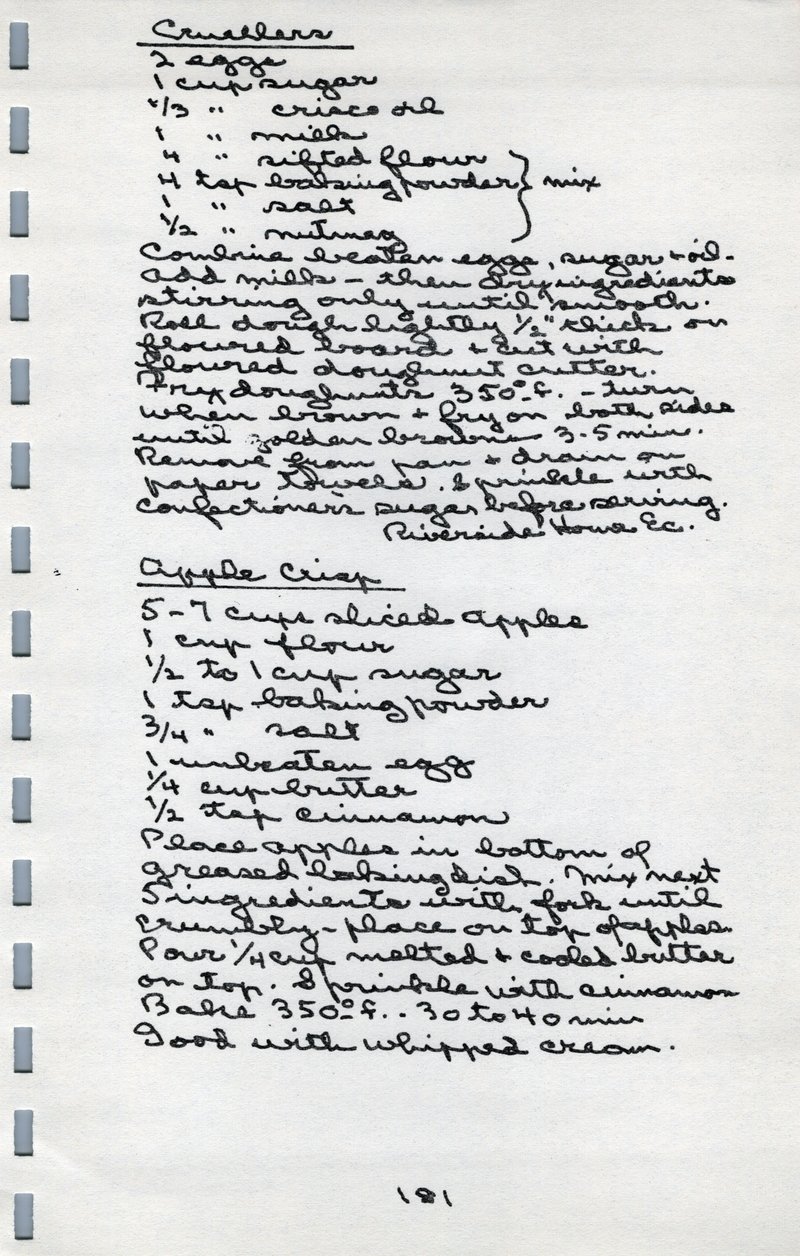 Cruellers
2 eggs
1 cup sugar
1/3 " crisco oil
1 " milk
4 " sifted flour
4 tsp baking powder } mix
1 " salt
1/2 " nutmeg
Combine beaten eggs, sugar + oil.
Add milk - then dry ingredients
stirring only until smooth.
Roll dough lightly 1/2" thick on
floured board + cut with
floured doughnut cutter.
Fry doughnuts 350° f. - turn
when brown + fry on both sides
until golden brown 3-5 min.
Remove from pan + drain on
paper towels. Sprinkle with
confectioners sugar before serving.
Riverside Home Ec.
Apple Crisp
5-7 cups sliced apples
1 cup flour
1/2 to 1 cup sugar
1 tsp baking powder
3/4 " salt
1 unbeaten egg
1/4 cup butter
1/2 tsp cinnamon
Place apples in bottom of
greased baking dish. Mix next
5 ingredients with fork until
crumbly - place on top of apples.
Pour 1/4 cup melted + cooled butter
on top. Sprinkle with cinnamon
Bake 350° f. . 30 to 40 min
Good with whipped cream.
181